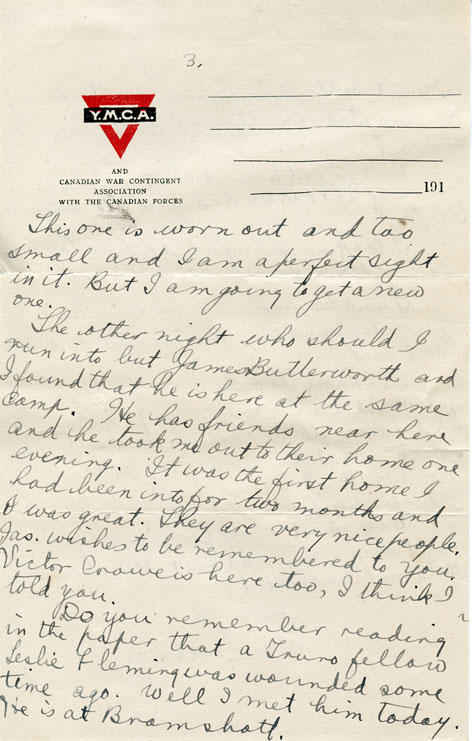 3.
Y.M.C.A.
AND
CANADIAN WAR CONTINGENT
ASSOCIATION
WITH THE CANADIAN FORCES
191
This one is worn out and too
small and I am a perfect sight
in it. But I am going to get a new
one.
The other night who should I
run into but James Butterworth and
I found that he is here at the same
camp. He has friends near here
and he took me out to their home one
evening. It was the first home I
had been into for two months and
I was great. They are very nice people.
Jas. wishes to be remembered to you.
Victor Crowe is here too, I think I
told you.
Do you remember reading
in the paper that a Truro fellow
Leslie Fleming was wounded some
time ago. Well I met him today.
He is at Bramshott.